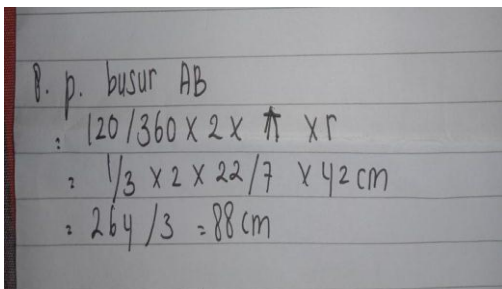 8. p. busur AB
= 120/360 x 2 x π x r
= 1/3 x 2 x 22/7 x 42 cm
= 264/3 = 88 cm